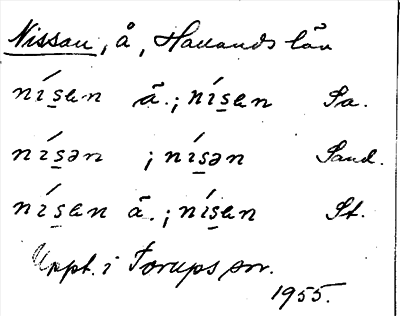 Nissan, å, Hallands län
nís̲an ā.; nís̲an Sa.
nís̲ən ; nís̲ən Sand.
nís̲an ā.; nís̲an St.
Uppt. i Torups sn.
1955.